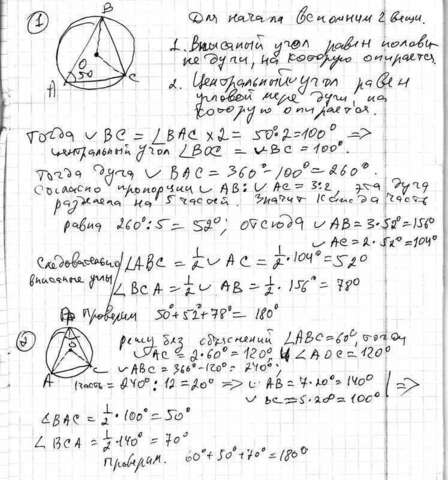 1
B
O
50
A
C
Для начала вспомним 2 вещи.
1. Вписаный угол равен половине дуги, на которую опирается.
2. Центральный угол равен угловой мере дуги, на которую опирается.
Тогда ◡BC = ∠BAC × 2 = 50°·2=100° ⇒
центральный угол ∠BOC = ◡BC = 100°.
Тогда дуга ◡BAC = 360°-100°=260°.
Согласно пропорции ◡AB:◡AC=3:2, эта дуга
разделена на 5 частей. Значит каждая часть
равна 260°:5=52°; отсюда ◡AB=3·52°=156°
◡AC=2·52°=104°
Следовательно вписаные углы
∠ABC = 1/2 ◡AC = 1/2·104° = 52°
∠BCA = 1/2 ◡AB = 1/2·156° = 78°
Проверим 50°+52°+78°=180°
2
B
O
A
C
решу без объяснений ∠ABC=60°, тогда
◡AC = 2·60°=120°, и ∠AOC=120°
◡ABC = 360°-120°=240°;
1часть=240°:12=20° ⇒ ◡AB=7·20°=140°
◡BC=5·20°=100° ⇒
∠BAC = 1/2·100°=50°
∠BCA = 1/2·140°=70°
Проверим. 60°+50°+70°=180°